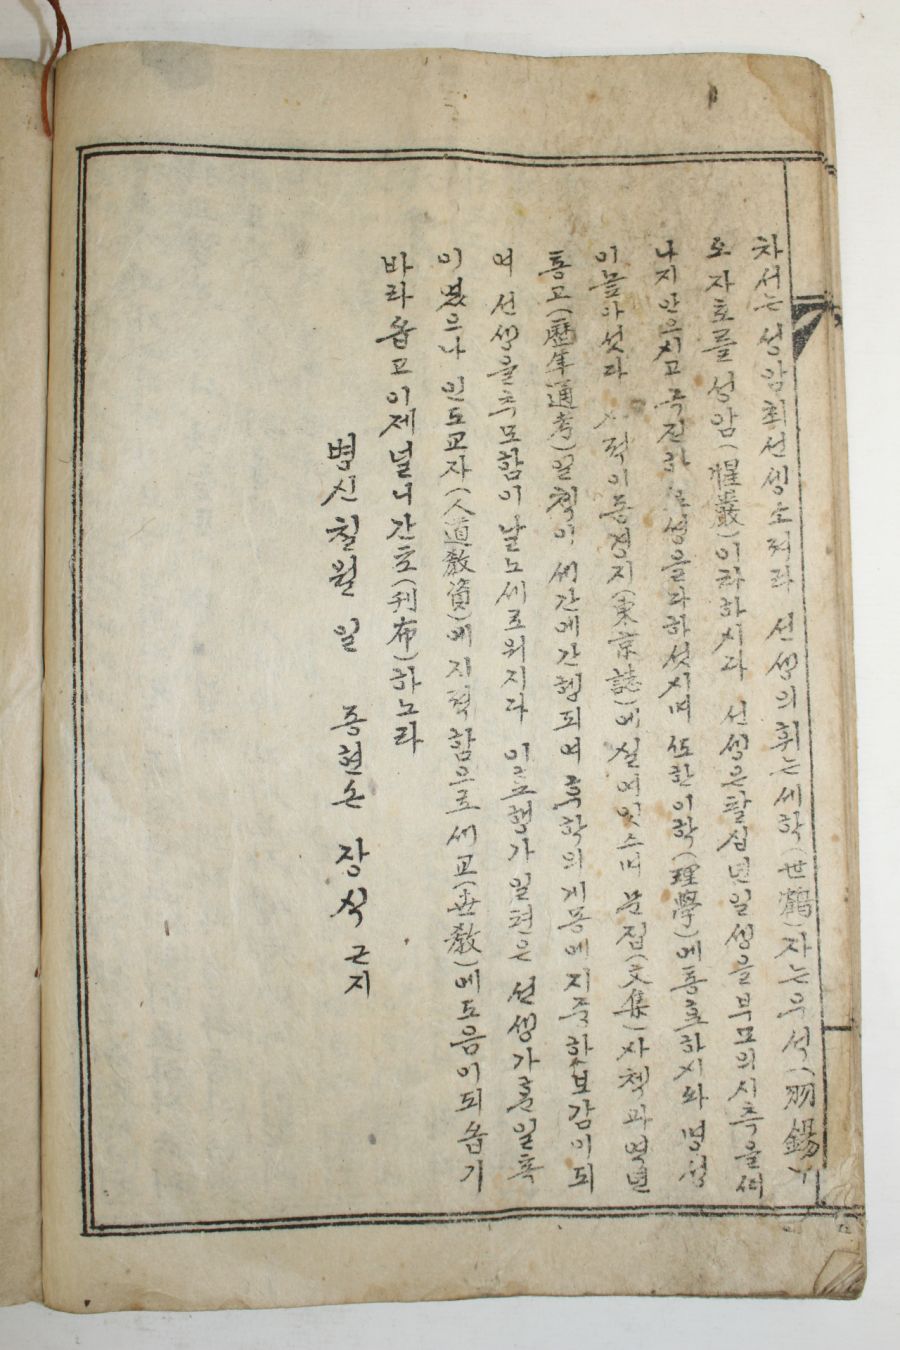 차서는 성암최선생소저라 선생의휘는세학(世鶴)자는우석(羽錫)
호자호를 성암(惺巖)이라하시다 선생은팔십년일생을부모의시측을떠
나지안으시고극진하 효성을다하섯시며 또한이학(理學)에통효하시와 명성
이놉아섯다 사적이동경지(東京誌)에실여잇스며 문집(文集)사책과역년
통고(歷年通考)일책이 세간에간행되여 후학의게몽에지중한보감이되
여 선생을추모함이날노새로워지다 이효행가일편은 선생가훈일혹
이였으나 인도교자(人道敎資)에 지적함으로 세교(世敎)에도음이되옵기
바라옵고이제널니간포(刊布)하노라
병신칠월 일 종현손 장식 근지